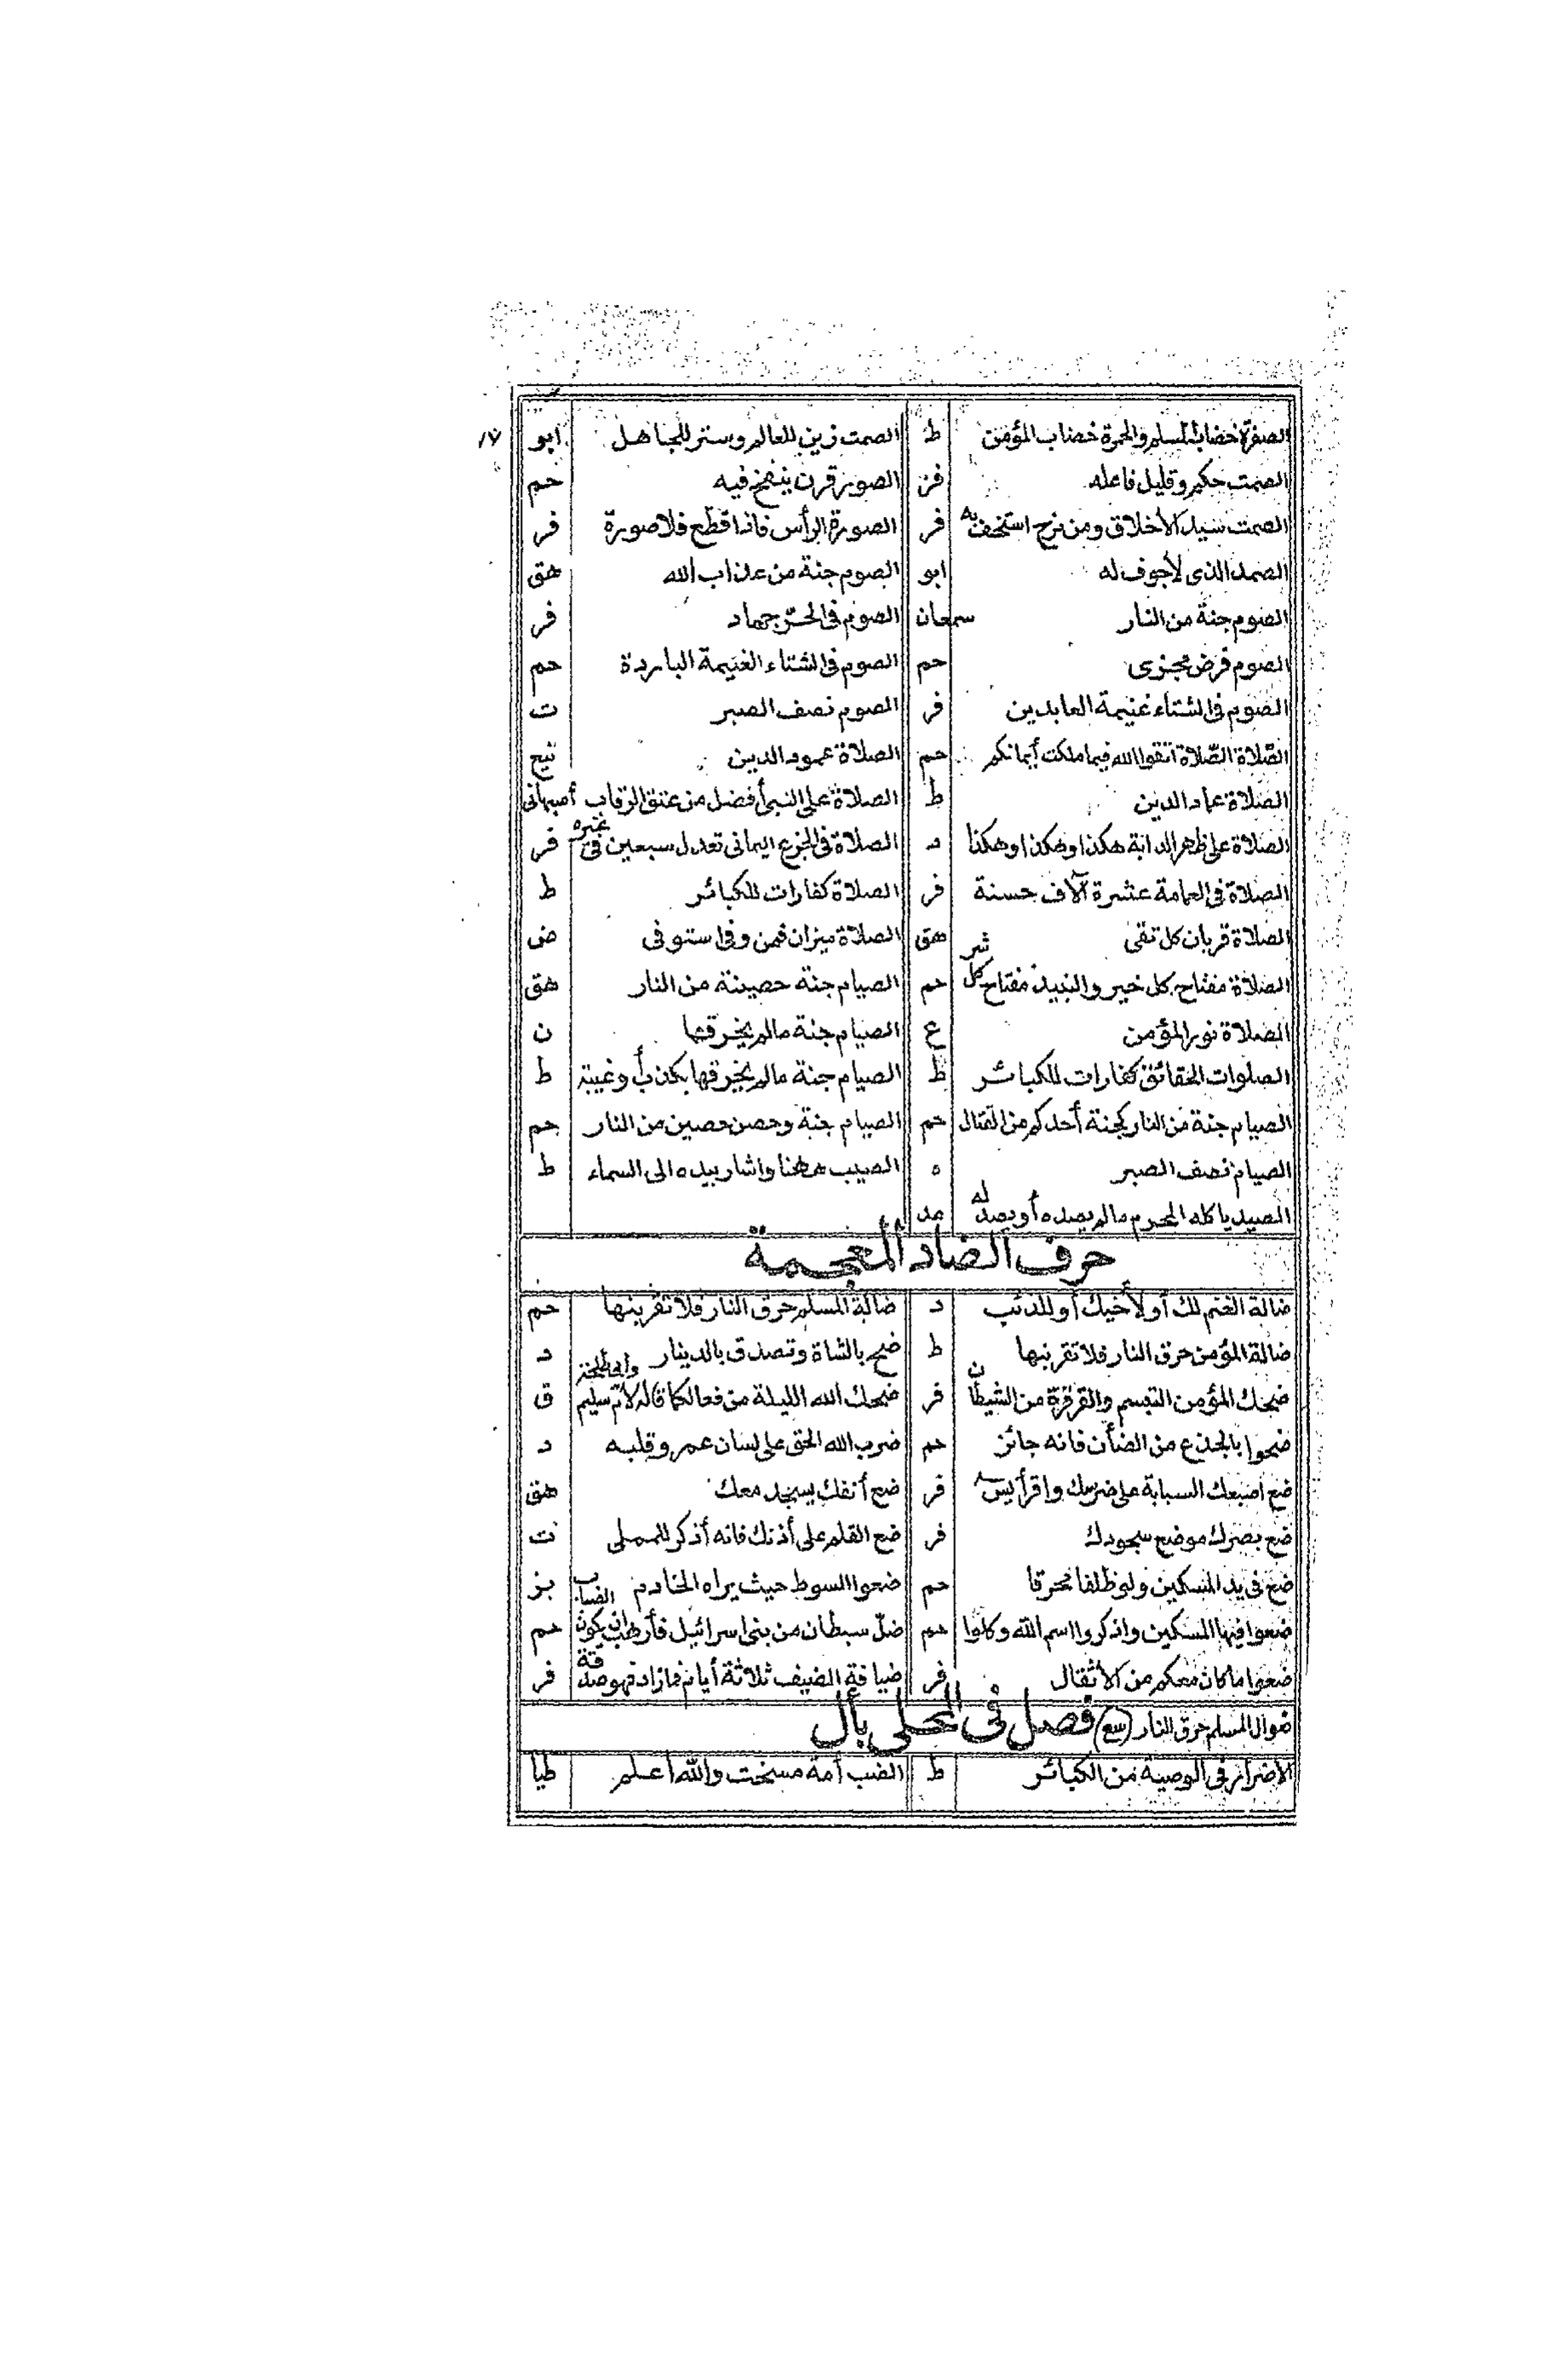 الصفرة خضاب المسلم والحمرة خضاب المؤمن ط الصمت زين للعالم وستر للجاهل ابو ١٧
الصمت حكم وقليل فاعله فر الصور قرن ينفخ فيه حم
الصمت سيد الأخلاق ومن مزح استخف به فر الصورة الرأس فاذا قطع فلا صورة فر
الصمد الذى لاجوف له ابو الصوم جنة من عذاب الله هق
الصوم جنة من النار سمعان الصوم فى الحرّ جهاد فر
الصوم فرض مجزى حم الصوم فى الشتاء الغنيمة الباردة حم
الصوم فى الشتاء غنيمة العابدين فر الصوم نصف الصبر ت
الصّلاة الصّلاة اتقوا الله فيما ملكت أيمانكم حم الصلاة عمود الدين
الصلاة عماد الدين ط الصلاة على النبى أفضل من عتق الرقاب أصبهانى
الصلاة على ظهر الدابة هكذا وهكذا وهكذا د الصلاة فى الجزع اليمانى تعدل سبعين فى غيره فر
الصلاة فى العمامة عشرة آلاف حسنة فر الصلاة كفارات للكبائر ط
الصلاة قربان كل تقى هق الصلاة ميزان فمن وفى استوفى ض
الصلاة مفتاح كل خير والنبيذ مفتاح كل شر حم الصيام جنة حصينة من النار هق
الصلاة نور المؤمن ع الصيام جنة مالم يخرقها ن
الصلوات الحقائق كفارات للكبائر ط الصيام جنة مالم يخرقها بكذب أو غيبة ط
الصيام جنة من النار كجنة أحدكم من القتال حم الصيام جنة وحصن حصين من النار حم
الصيام نصف الصبر ه الصيب ههنا واشار بيده الى السماء ط
الصيد يأكله المحرم مالم يصده أو يصد له عد
حرف الضاد المعجمة
ضالة الغنم لك أو لأخيك أو للذئب د ضالة المسلم حرق النار فلا تقربنها حم
ضالة المؤمن حرق النار فلا تقربنها ط ضح بالشاة وتصدق بالدينار د
ضحك المؤمن التبسم والقرقرة من الشيطان فر ضحك الله الليلة من فعالكما قاله لأم سليم وابى طلحة ق
ضحوا بالجذع من الضأن فانه جائز حم ضرب الله الحق على لسان عمر وقلبه د
ضع اصبعك السبابة على ضرسك واقرأ يس فر ضع أنفك يسجد معك هق
ضع بصرك موضع سجودك فر ضع القلم على أذنك فانه أذكر للمملى ت
ضع فى يد المسكين ولو ظلفا محرقا حم ضعوا السوط حيث يراه الخادم بز
ضعوا فيها السكين واذكروا اسم الله وكلوا حم ضلّ سبطان من بنى اسرائيل فأرهب ان يكون الضباب حم
ضعوا ما كان معكم من الأثقال فر ضيافة الضيف ثلاثة أيام فما زاد فهو صدقة فر
ضوال المسلم حرق النار (سع) فصل فى المحلى بأل
الاضرار فى الوصية من الكبائر ط الضب أمة مسخت والله أعلم طيا